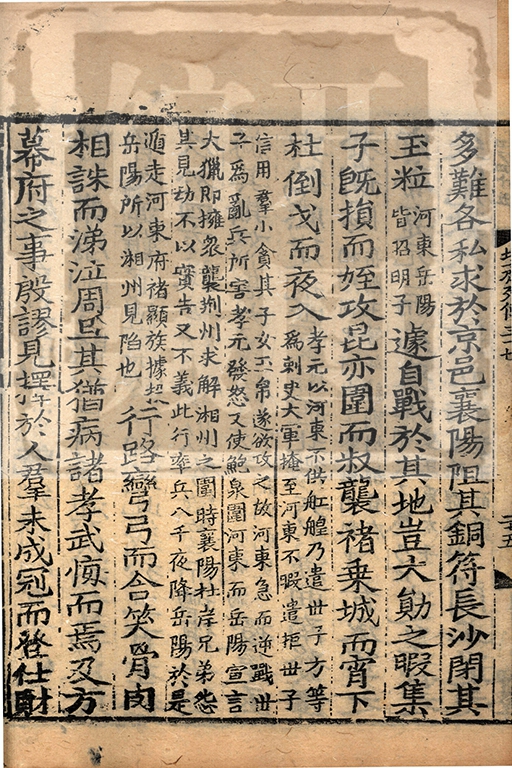 多難各私求於京邑襄陽阻其銅符長沙閉其
玉粒
河東岳陽
皆招明子
遽自戰於其地豈大勛之暇集
子旣損而姪攻昆亦圍而叔襲褚乗城而宵下
杜倒戈而夜入
孝元以河東不供舡艎乃遣世子方等
爲刺史大軍掩至河東不暇遣拒世子
信用羣小貪其子女玉帛遂欲攻之故河東急而逆戰世
子爲亂兵所害孝元發怒又使鮑泉圍河東而岳陽宣言
大獵即擁衆襲荆州求解湘州之圍時襄陽杜岸兄弟怨
其見劫不以實告又不義此行率兵八千夜降岳陽於是
遁走河東府褚顯族據投
岳陽所以湘州見陷也
行路彎弓而含笑骨肉
相誅而涕泣周旦其猶病諸孝武悔而焉及方
幕府之事殷謬見擇於人羣未成冠而登仕財